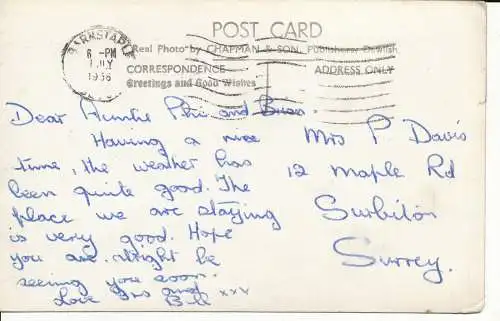 POST CARD
BARNSTAPLE
6 - PM
JLY
"Real Photo" by CHAPMAN & SON, Publishers, Dawlish
CORRESPONDENCE
ADDRESS ONLY
Greetings and Good Wishes
Dear Auntie and
Having a nice
time, the weather has
been quite good. The
place we are staying
is very good. Hope
you are alright be
seeing you soon.
Love and Bill xxx
Mrs P Davis
12 Maple Rd
Surbiton
Surrey.